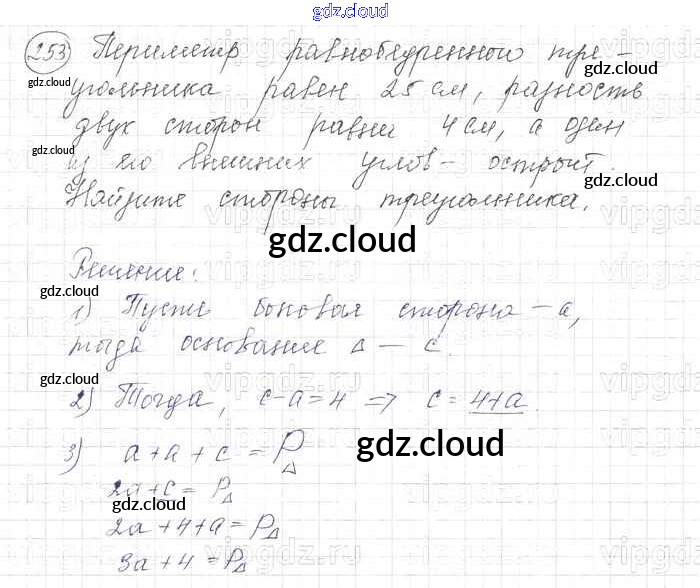 gdz.cloud
253 Периметр равнобедренного тре-
gdz.cloud
gdz.cloud
угольника равен 25 см, разность
двух сторон равна 4 см, а один
gdz.cloud
из его внешних углов - острый.
gdz.cloud
Найдите стороны треугольника.
gdz.cloud
Решение:
gdz.cloud
1) Пусть боковая сторона - a,
тогда основание Δ - c.
gdz.cloud
2) Тогда, c-a=4 => c = 4+a.
3) a+a+c = PΔ
gdz.cloud
2a+c = PΔ
gdz.cloud
2a+4+a = PΔ
3a+4 = PΔ